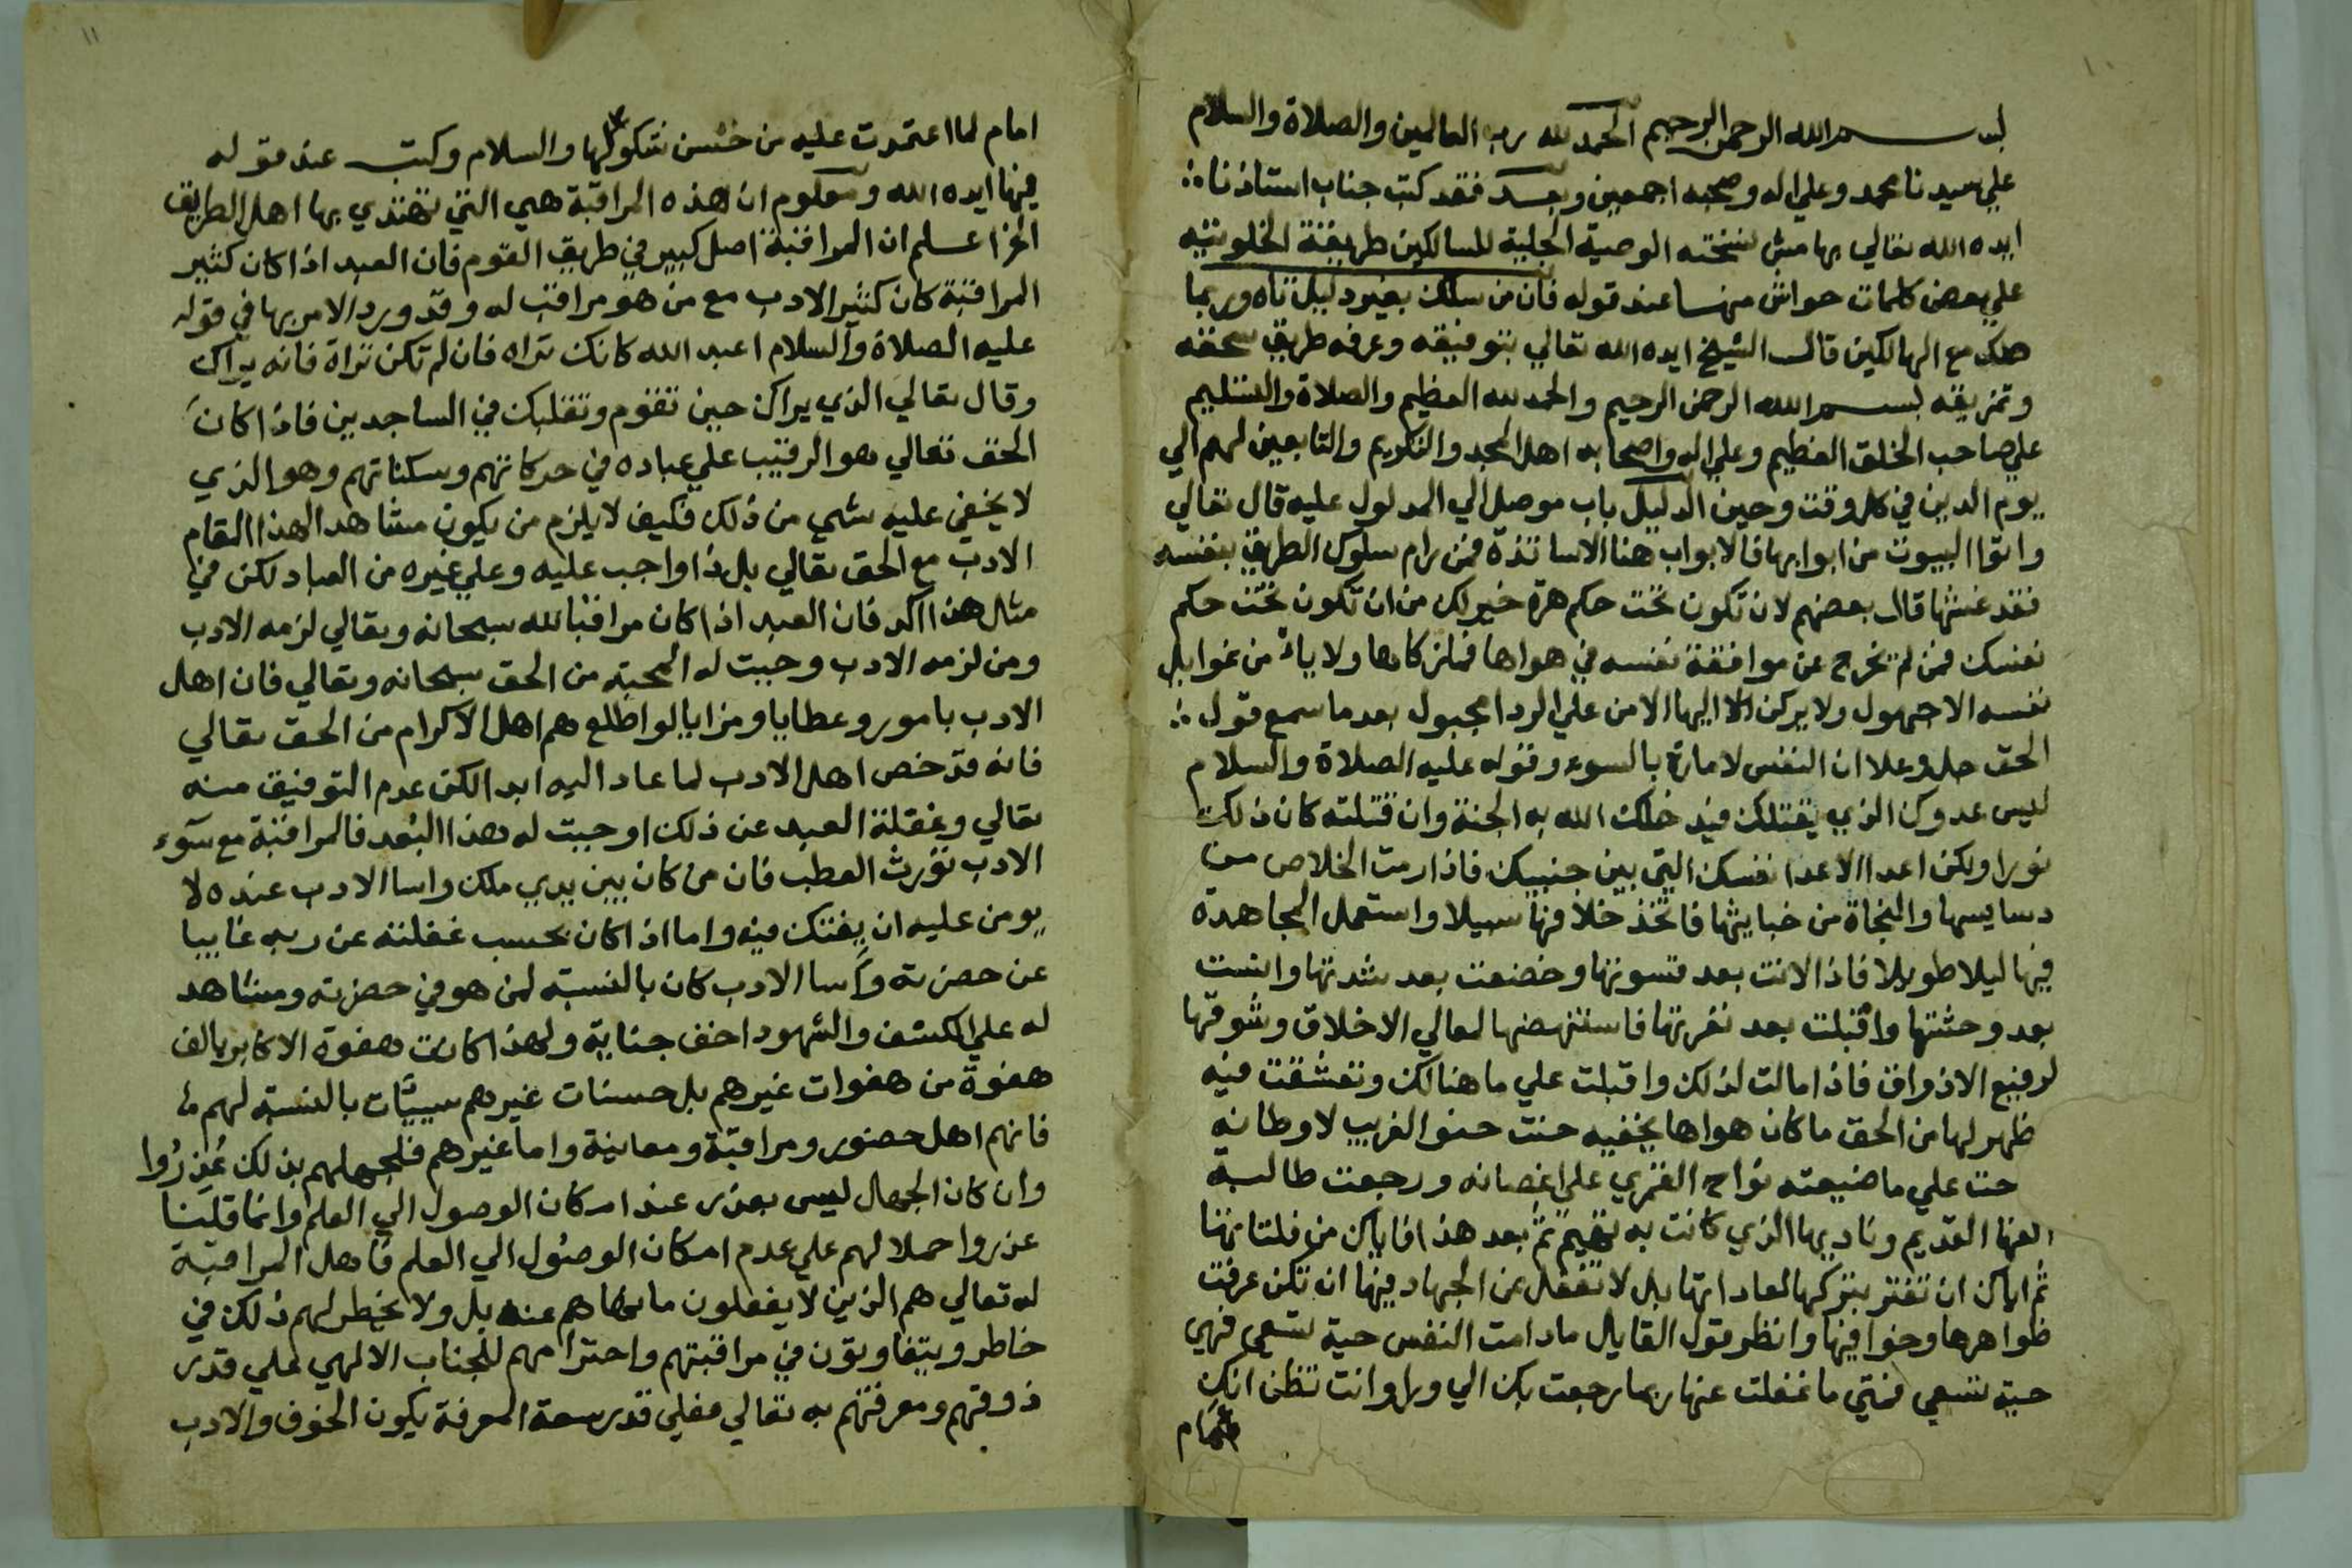 ١٠
بسم الله الرحمن الرحيم الحمد لله رب العالمين والصلاة والسلام
علي سيدنا محمد وعلي اله وصحبه اجمعين وبعد فقد كتب جناب استاذنا
ايده الله تعالي بهامش نسخته الوصية الجلية للسالكين طريقة الخلوتيه
علي بعض كلمات حواش منها عند قوله فان من سلك بغير دليل تاه وربما
هلك مع الهالكين قال الشيخ ايده الله تعالي بتوفيقه وعرفه طريق سحقه
وتمزيقه بسم الله الرحمن الرحيم والحمد لله العظيم والصلاة والتسليم
علي صاحب الخلق العظيم وعلي اله واصحابه اهل المجد والتكريم والتابعين لهم الي
يوم الدين في كل وقت وحين الدليل باب موصل الي المدلول عليه قال تعالي
واتوا البيوت من ابوابها فالابواب هنا الاساتذة فمن رام سلوك الطريق بنفسه
فقد غشها قال بعضهم لان تكون تحت حكم هرة خير لك من ان تكون تحت حكم
نفسك فمن لم يخرج عن موافقة نفسه في هواها فما زكاها ولا يامن غوايل
نفسه الا جهول ولا يركن اليها الا من علي الردا مجبول بعد ما سمع قول
الحق جل وعلا ان النفس لامارة بالسوء وقوله عليه الصلاة والسلام
ليس عدوك الذي يقتلك فيدخلك الله به الجنة وان قتلته كان ذلك
نورا ولكن اعدا الاعدا نفسك التي بين جنبيك فاذا رمت الخلاص من
دسايسها والنجاة من خبايثها فاتخذ خلافها سبيلا واستعمل المجاهدة
فيها ليلا طويلا فاذا لانت بعد قسوتها وخضعت بعد شدتها وانست
بعد وحشتها واقبلت بعد نفرتها فاستنهضها لمعالي الاخلاق وشوقها
لرفيع الاذواق فاذا مالت لذلك واقبلت علي ما هنالك وتعشقت فيه
ظهر لها من الحق ما كان هواها يخفيه حنت حنو الغريب لاوطانه
حت علي ما ضيعته نواح القمري علي اغصانه ورجعت طالبة
الفها القديم وناديها الذي كانت به تهيم ثم بعد هذا فاياك من فلتاتها
ثم اياك ان تغتر بتركها لعاداتها بل لا تغفل عن الجهاد فيها ان تكن عرفت
ظواهرها وخوافيها وانظر قول القايل مادامت النفس حية تسعي فهي
حية تسعي فمتي ما غفلت عنها ربما رجعت بك الي ورا وانت تظن انك
امام
١١
امام لما اعتمدت عليه من حسن تتكولها والسلام وكتب عند قوله
فيها ايده الله ومعلوم ان هذه المراقبة هي التي تهتدي بها اهل الطريق
الخ اعلم ان المراقبة اصل كبير في طريق القوم فان العبد اذا كان كثير
المراقبة كان كثير الادب مع من هو مراقب له وقد ورد الامر بها في قوله
عليه الصلاة والسلام اعبد الله كانك تراه فان لم تكن تراه فانه يراك
وقال تعالي الذي يراك حين تقوم وتقلبك في الساجدين فاذا كان
الحق تعالي هو الرقيب علي عباده في حركاتهم وسكناتهم وهو الذي
لا يخفي عليه شي من ذلك فكيف لا يلزم من يكون مشاهدا لهذا المقام
الادب مع الحق تعالي بل ذا واجب عليه وعلي غيره من العباد لكن في
مثل هذا اكد فان العبد اذا كان مراقبا لله سبحانه وتعالي لزمه الادب
ومن لزمه الادب وجبت له المحبة من الحق سبحانه وتعالي فان اهل
الادب بامور وعطايا ومزايا لواطلع هم اهل الاكرام من الحق تعالي
فانه قد خص اهل الادب لما عاد اليه ابدا لكن عدم التوفيق منه
تعالي وغفلة العبد عن ذلك اوجبت له هذا البعد فالمراقبة مع سوء
الادب تورث العطب فان من كان بين يدي ملك واسا الادب عنده لا
يومن عليه ان يفتك فيه واما اذا كان بحسب غفلته عن ربه غايبا
عن حضرته واسا الادب كان بالنسبة لمن هو في حضرته ومشاهد
له علي الكشف والشهود اخف جناية ولهذا كانت هفوة الاكابر بالف
هفوة من هفوات غيرهم بل حسنات غيرهم سييات بالنسبة لهم
فانهم اهل حضور ومراقبة ومعاينة واما غيرهم فلجهلهم بذلك عذروا
وان كان الجهل ليس بعذر عند امكان الوصول الي العلم وانما قلنا
عذروا حملا لهم علي عدم امكان الوصول الي العلم فاهل المراقبة
له تعالي هم الذين لا يفعلون ما نهاهم عنه بل ولا يخطر لهم ذلك في
خاطر ويتفاوتون في مراقبتهم واحترامهم للجناب الالهي علي قدر
ذوقهم ومعرفتهم به تعالي فعلي قدر سعة المعرفة يكون الخوف والادب